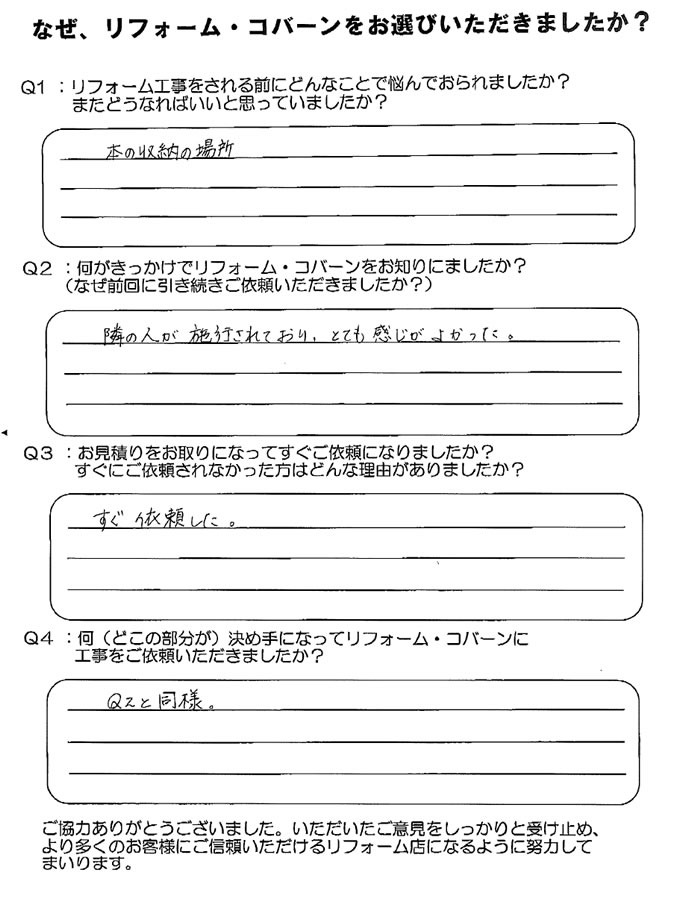 なぜ、リフォーム・コバーンをお選びいただきましたか？
Q1 ：リフォーム工事をされる前にどんなことで悩んでおられましたか？
またどうなればいいと思っていましたか？
本の収納の場所
Q2 ：何がきっかけでリフォーム・コバーンをお知りにましたか？
（なぜ前回に引き続きご依頼いただきましたか？）
隣の人が施行されており、とても感じがよかった。
Q3 ：お見積りをお取りになってすぐご依頼になりましたか？
すぐにご依頼されなかった方はどんな理由がありましたか？
すぐ依頼した。
Q4 ：何（どこの部分が）決め手になってリフォーム・コバーンに
工事をご依頼いただきましたか？
Q2と同様。
ご協力ありがとうございました。いただいたご意見をしっかりと受け止め、
より多くのお客様にご信頼いただけるリフォーム店になるように努力して
まいります。